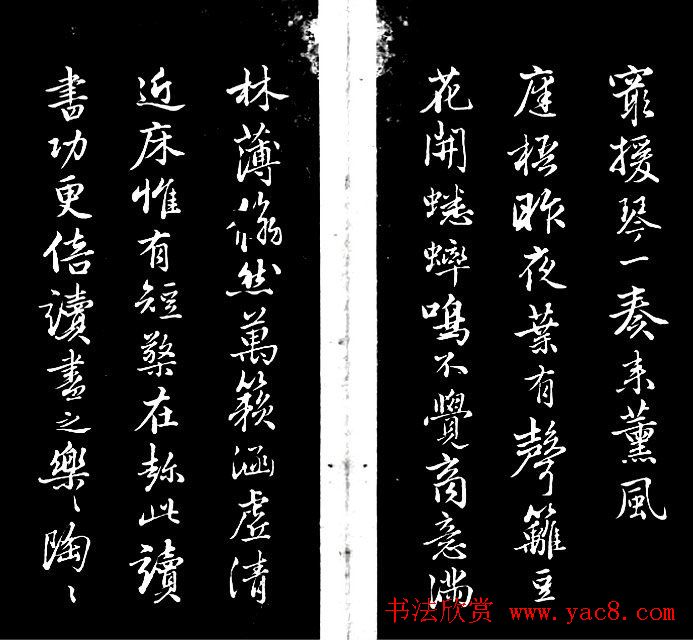 窮援琴一奏來薰風
庭梧昨夜葉有聲籬豆
花開蟋蟀鳴不覺商意滿
林薄翛然萬籟涵虛清
近床惟有短檠在趂此讀
書功更倍讀書之樂〻陶〻
书法欣赏 www.yac8.com